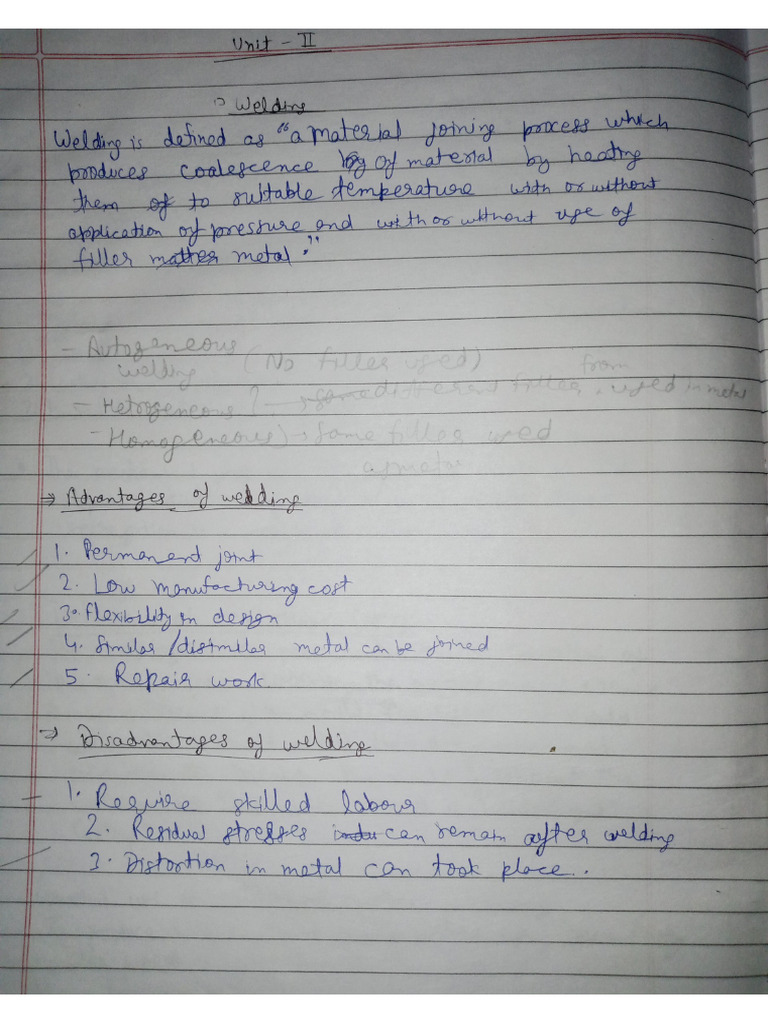 Unit - II
Welding
Welding is defined as "a material joining process which
produces coalescence of material by heating
them to suitable temperature with or without
application of pressure and with or without use of
filler metal."
- Autogeneous (No filler used)
welding
from
- Hetrogeneous different filler used in metal
- Homogeneous) → Same filler used
→ Advantages of welding
1. Permanent joint
2. Low manufacturing cost
3. Flexibility in design
4. Similar / disimilar metal can be joined
5. Repair work
→ Disadvantages of welding
1. Require skilled labour
2. Residual stresses can remain after welding
3. Distortion in metal can took place..